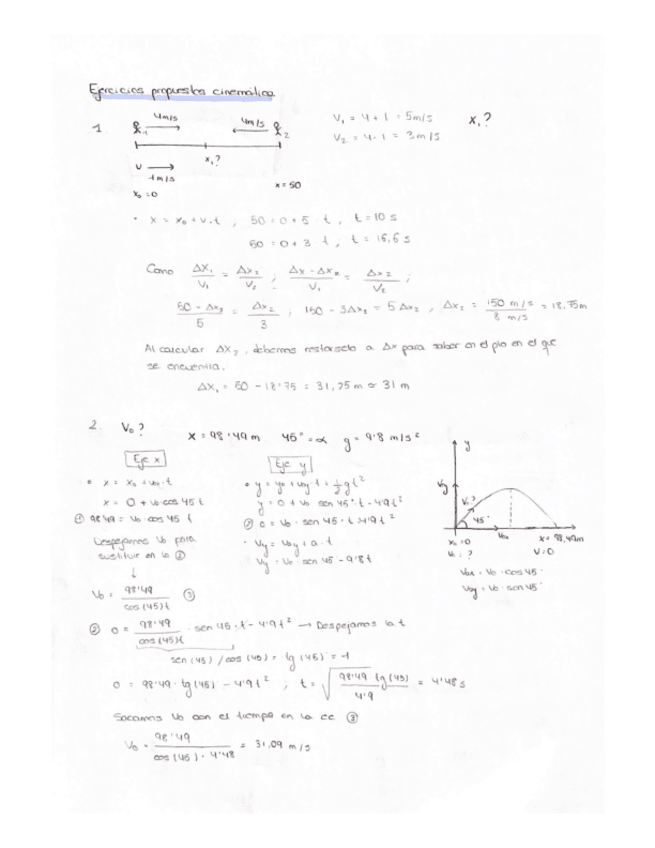 Ejercicios propuestos cinemática.
1.
4m/s
4m/s
1
2
V₁ = 4 + 1 = 5m/s
x₁?
V₂ = 4-1 = 3m/s
x₁?
v
1m/s
x₀ = 0
x = 50
• x = x₀ + v·t ; 50 = 0 + 5 · t , t = 10 s
50 = 0 + 3 · t ; t = 16,6 s
Como ΔX₁/V₁ = ΔX₂/V₂ ; = Δx₂/V₂ ;
50 - Δx₂/5 = Δx₂/3 ; 150 - 3Δx₂ = 5Δx₂ , Δx₂ = 150 m/s / 8 m/s = 18,75m
Al calcular Δx₂, debemos restarselo a Δx para saber en el pto en el que
se encuentra.
ΔX₁ = 50 - 18'75 = 31,25 m ≃ 31 m
2. V₀?
x = 98'49 m 45° = α g = 9'8 m/s²
Eje x
Eje y
• x = x₀ + v₀ₓ·t
x = 0 + v₀·cos 45 t
① 98'49 = v₀·cos 45 t
Despejamos v₀ para
sustituir en la ②
↓
V₀ = 98'49/cos(45)t ③
• y = y₀ + v₀y·t + ½gt²
y = 0 + v₀ sen 45°·t - 4'9t²
② 0 = v₀ · sen 45 · t - 4'9t²
• Vy = V₀y + a·t
Vy = V₀ · sen 45 - 9'8t
y
Vy
V₀?
45°
x₀ = 0
V₀ = ?
V₀ₓ
x = 98,49m
V = 0
V₀ₓ = V₀ · cos 45°
V₀y = V₀ · sen 45°
② 0 = 98'49/cos(45)t · sen 45·t - 4'9t² → Despejamos la t
sen(45)/cos(45) = tg(45) = 1
0 = 98'49 · tg(45) - 4'9t² ; t = √(98'49 tg(45)/4'9) = 4'48 s
Sacamos V₀ con el tiempo en la ec ③
V₀ = 98'49/cos(45)·4'48 = 31,09 m/s